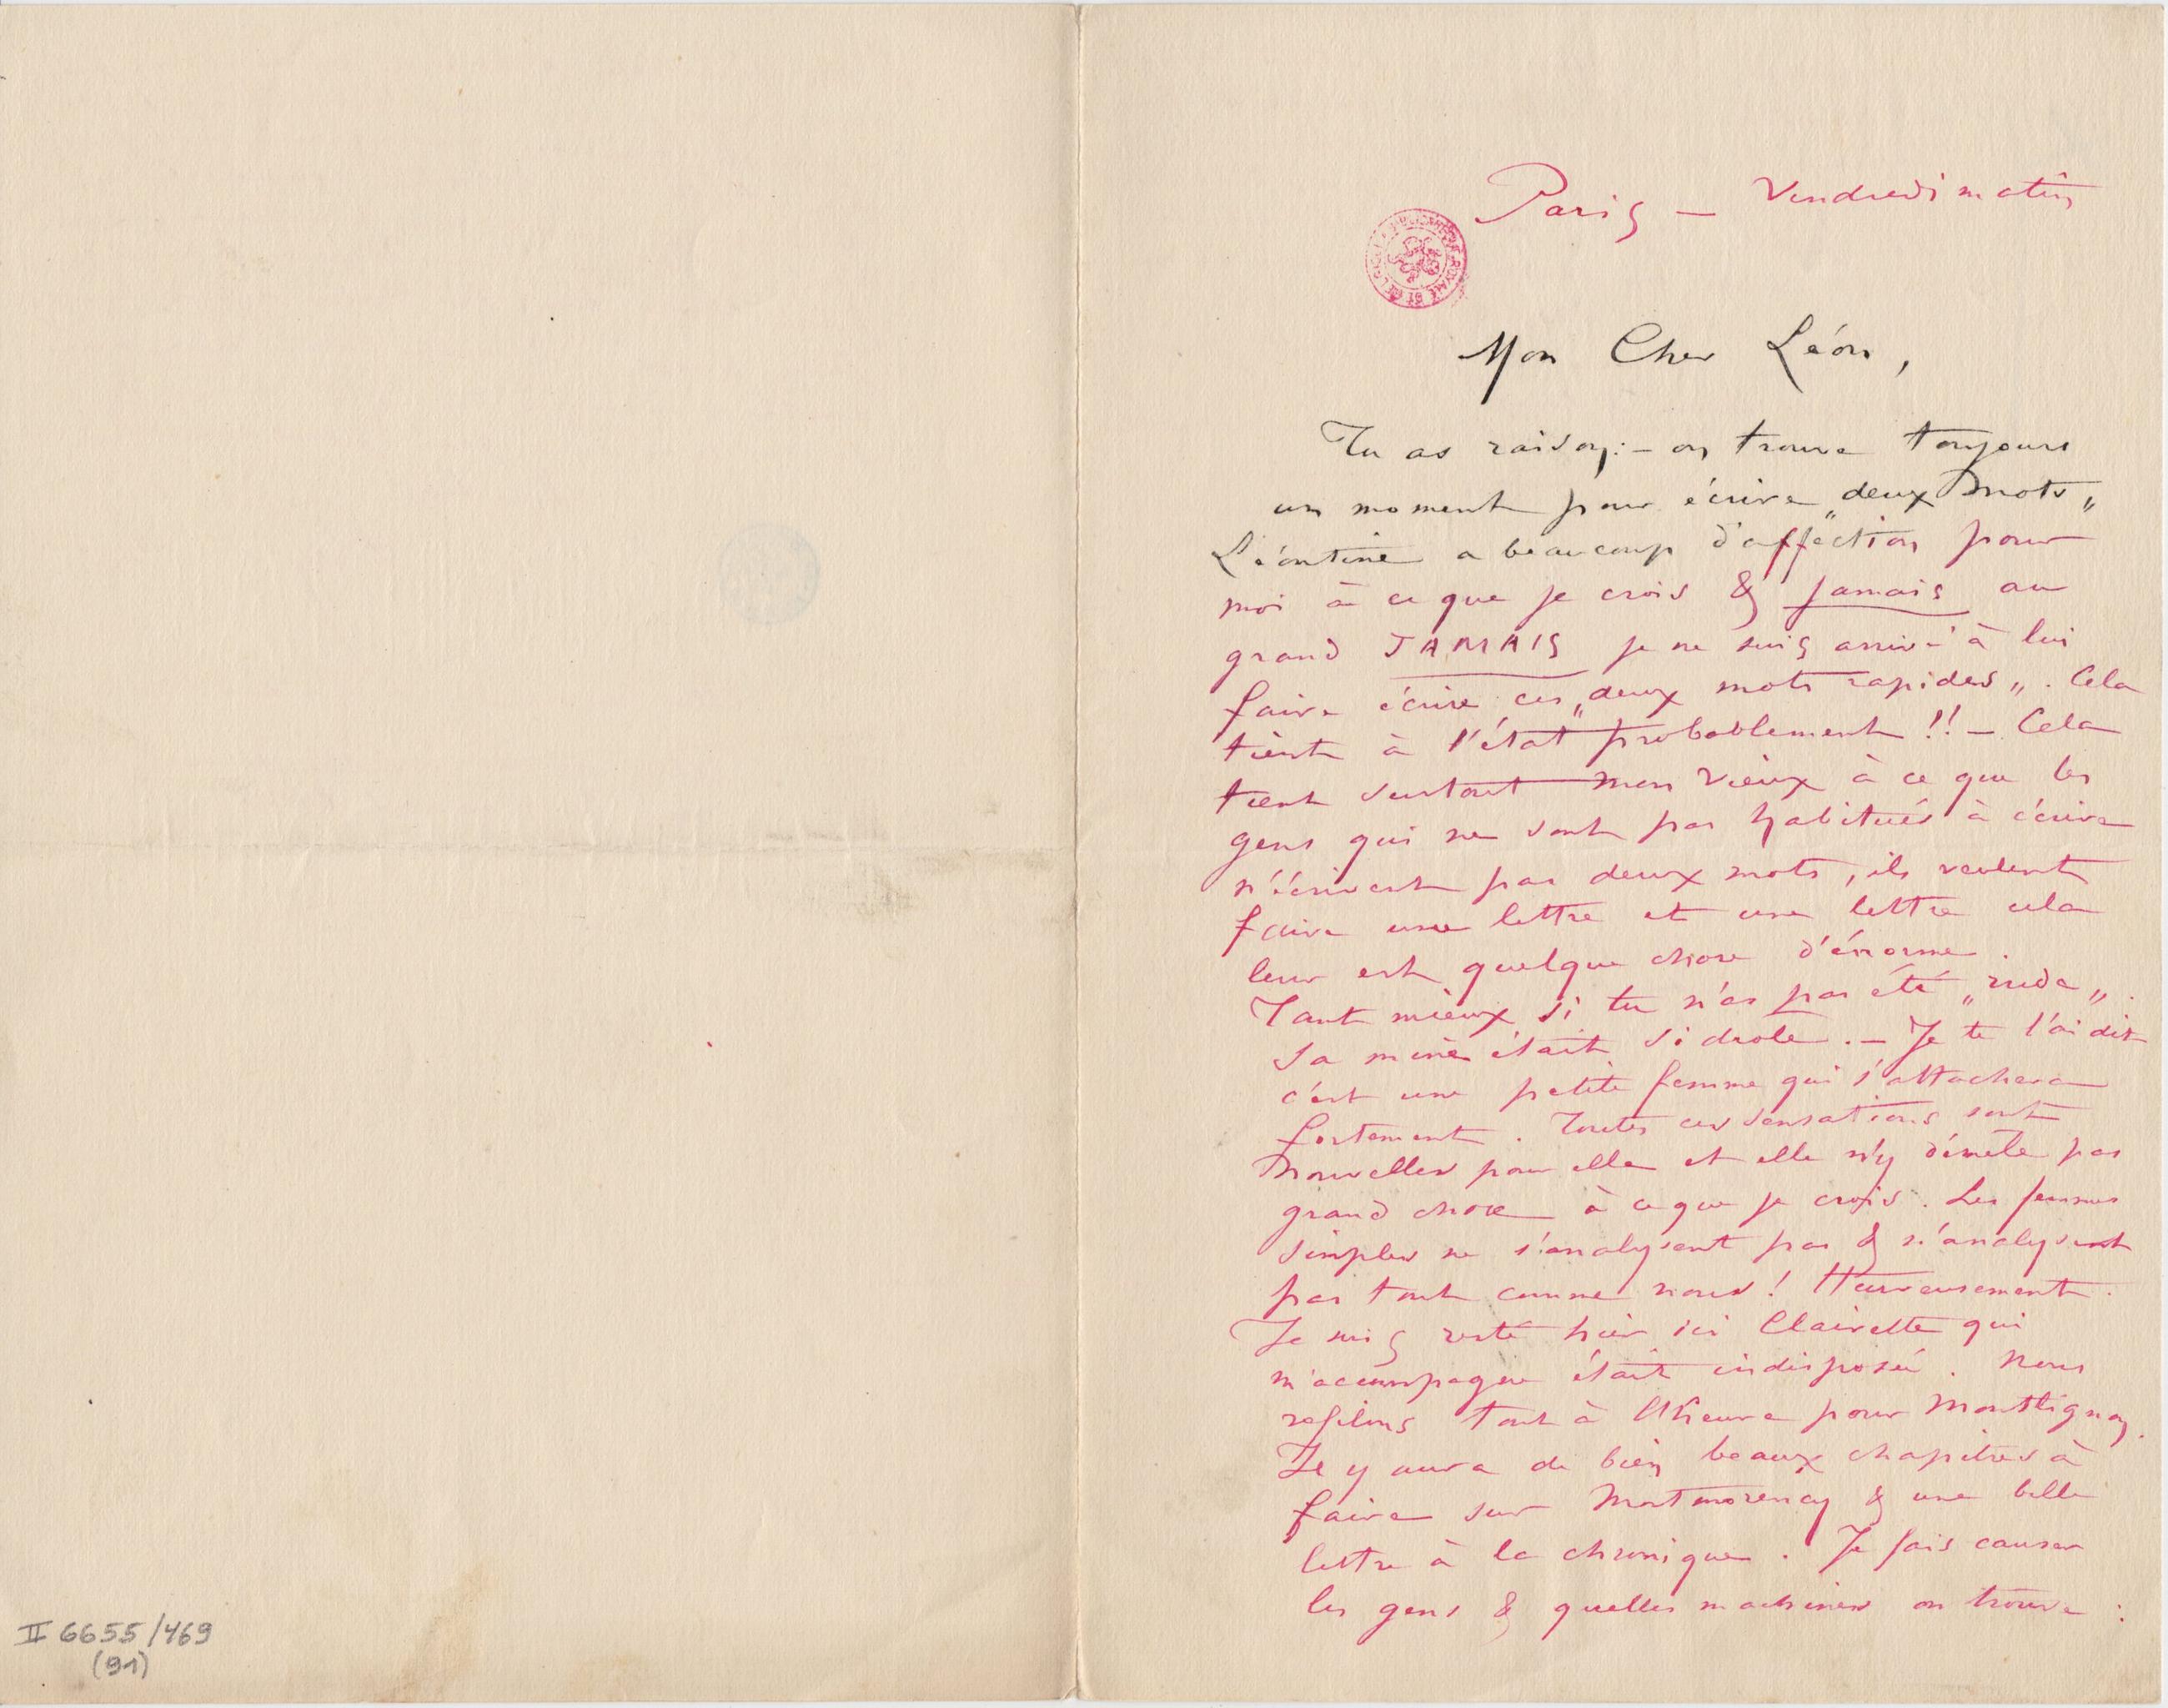 Paris — Vendredi matin
BIBLIOTHÈQUE ROYALE DE BELGIQUE
Mon Cher Léon,
Tu as raison: – on trouve toujours
un moment pour écrire „deux mots„
Léontine a beaucoup d'affection pour
moi à ce que je crois & jamais au
grand JAMAIS je ne suis arrivé à lui
faire écrire ces „deux mots rapides„. Cela
tient à l'état probablement !! – Cela
tient surtout mon vieux à ce que les
gens qui ne sont pas habitués à écrire
n'écrivent pas deux mots, ils veulent
faire une lettre et une lettre cela
leur est quelque chose d'énorme.
Tant mieux si tu n'as pas été „rude„.
Sa mine était si drole. – Je te l'ai dit
c'est une petite femme qui s'attachera
fortement. Toutes ces sensations sont
nouvelles pour elle et elle n'y démêle pas
grand chose à ce que je crois. Les femmes
simples ne s'analysent pas & n'analysent
pas tout comme nous! Heureusement.
Je suis resté hier ici Clairette qui
m'accompagne était indisposée. Nous
refilons tout à l'heure pour Montlignon.
Il y aura de bien beaux chapitres à
faire sur Montmorency & une belle
lettre à la chronique. Je fais causer
les gens & quelles machines on trouve :
II 6655/469
(91)